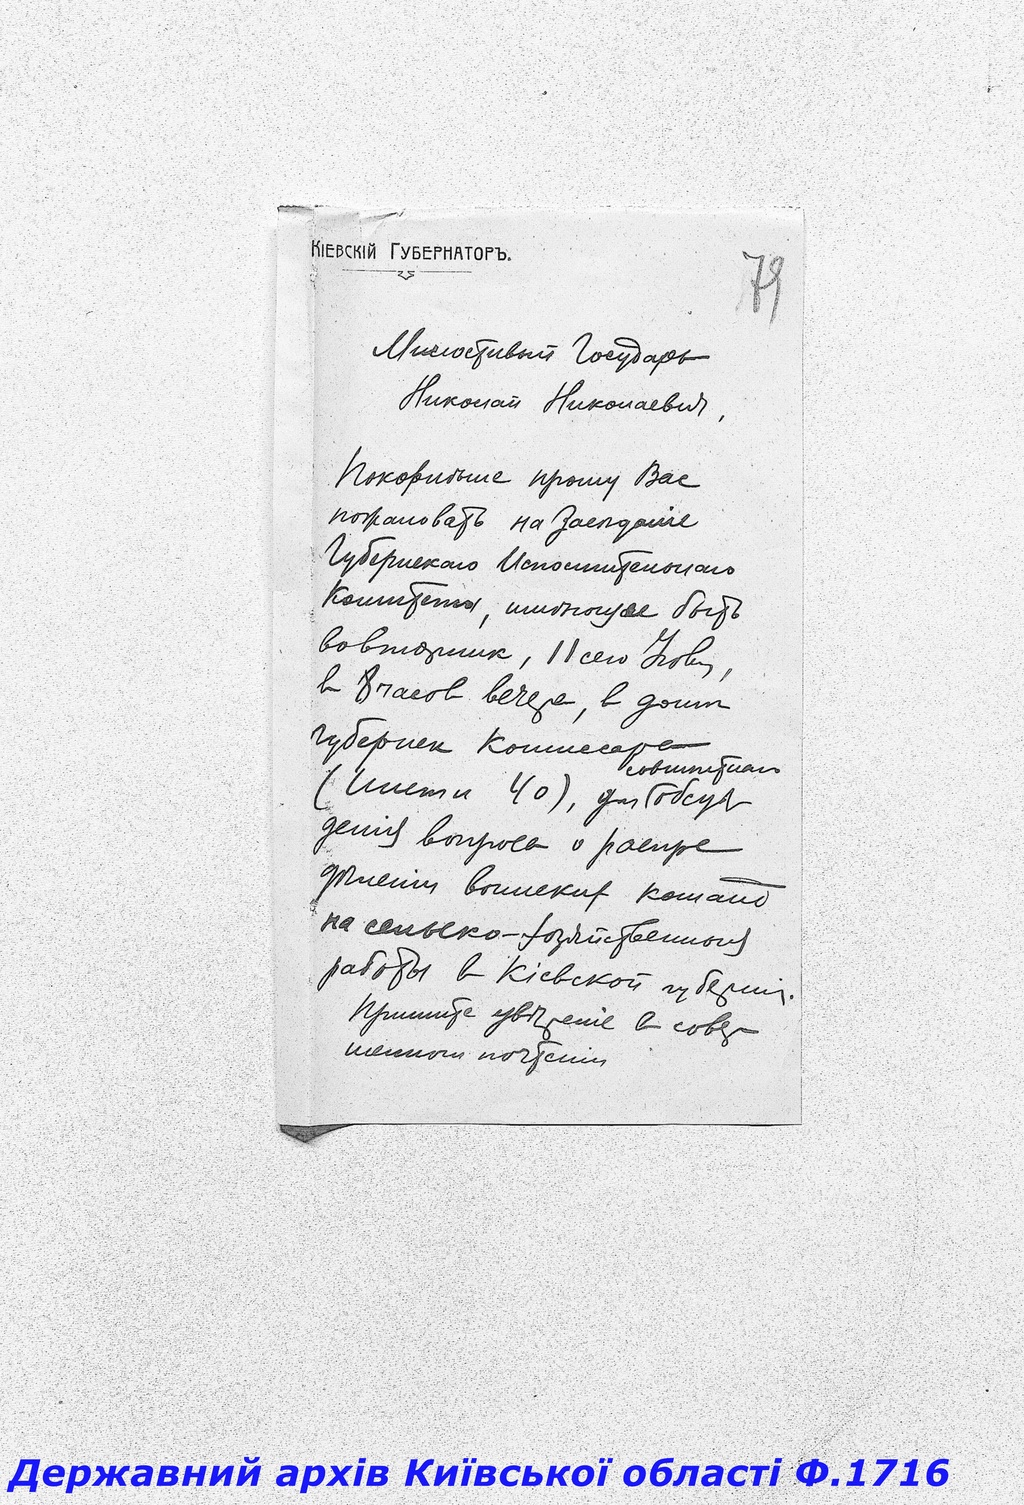 Кіевскій Губернаторъ.
79
Милостивый Государь
Николай Николаевич,
Покорнѣйше прошу Вас
пожаловать на Заседаніе
Губернскаго Исполнительнаго
Комитета, имѣющее быть
во вторник, 11 сего
в 8 часов вечера, в доме
губернск Комиссара
совместнаго
40), для обсуж
денія вопроса о распре
дѣленіи воинских команд
на сельско-хозяйственныя
работы в Кіевской губерніи.
Примите увѣреніе в совер
шенном почтеніи
Державний архів Київської області Ф.1716